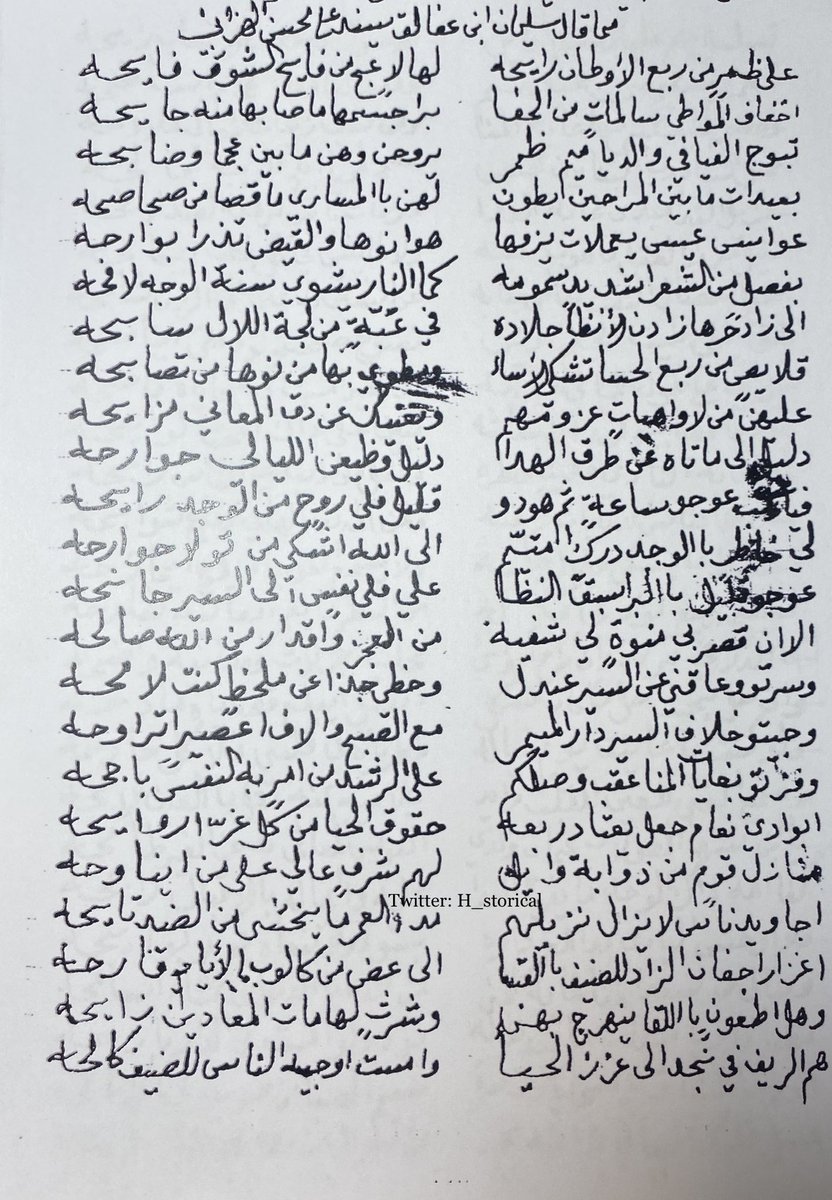 مما قال سليمان ابن عفالق يسند على محسن الهزاني
على ظمر من ربع الأوطان رايحه لها لاعج من فايح الشوق فايحه
اخفاف المواطي سالمات من الحفا براجسمها ما صابها منه جايحه
تبوج الفيافي والدياميم ظمر يروحن وهن ما بين عجما وضابحه
بعيدات ما بين المراحين ايطون لهن بالمساري ما قصا من صحاصحه
عوايس عيسى يعملات يزفها هوانوها والقيض تذرا بوارحه
بفصل من الشعرا شديد سمومه كما النار يشوي سنة الوجه لافحه
الى زاد حرها زادن الأنظا جلاده في غبّة من لجة اللال سابحه
قلايص من ربع الحسا تشكي الأسا ويطوي بها من نوها من تصابحه
عليهن من لاواهيات عزومهم وتغنيك عن دق المعاني مزايحه
دليل الى ما تاه عن طرق الهدا دليل وظيعن الليالي جوارحه
عوجو ساعة ثم هودو قليل فلي روح من الوجد رايحه
لي خاطر بالوجد دركٍ امتيّم الى الله اشكي من تولا جوارحه
عوجو قليل يا الحبر اسبق النظا علي فلي نفس الى السير جانحه
الا ان قصر بي منوة لي شفية من العجز واقدار من الله صالحه
وسرتو وعاقني عن السير عندل وحظر جبذا عن ملحظ كنت لامحه
وجيتو خلاف السير دار الميمر مع القبيح والاف اعصير اتراوحه
وفزتو بغايات المنا عقب وصلكم على الرشد من امر به النفس باجحه
ابوادي نعام جعل يعتاد ربعه حقوق الحيا من كل غرّا روايحه
منازل قوم من ذوابة وايل لهم شرف عالي على من ايناوحه
Twitter: H_storical
اجاويد ناس لا يزال نزيلهم مدء العمر ما يختشي من الضد نايحه
اغزار اجفان الزاد للضيف بالقسا الى عض من كالوب الأيام قارحه
وهل اطعون باللقا ينهرج بهن وشرثٍ لهامات المعادين زايحه
هم الريف في نجد الى عزز الحيا وامست اوجيه الناس للضيف كالحه